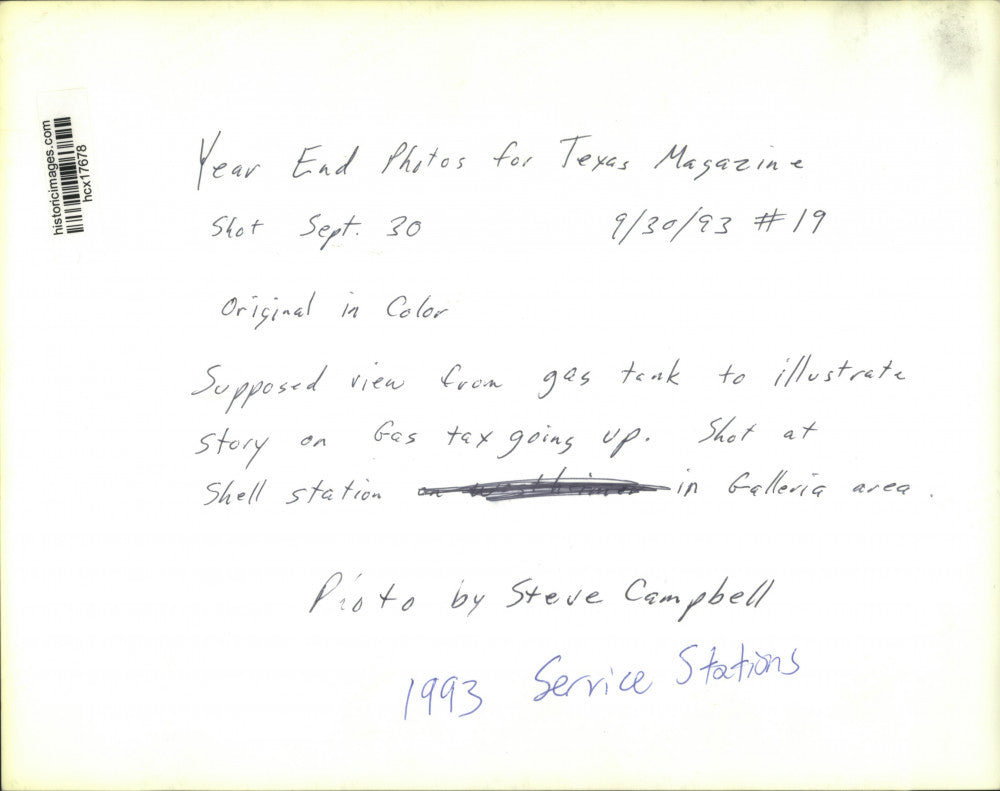 historicimages.com
hcx17678
Year End Photos for Texas Magazine
Shot Sept. 30 9/30/93 #19
Original in Color
Supposed view from gas tank to illustrate
story on Gas tax going up. Shot at
Shell station on Westheimer in Galleria area.
Photo by Steve Campbell
1993 Service Stations